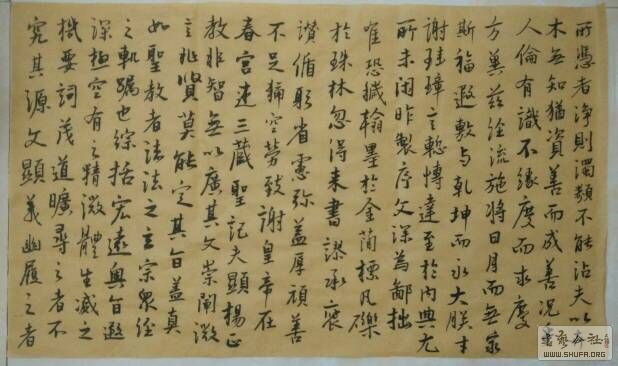 所憑者淨則濁類不能沾夫以
木無知猶資善而成善況乎
人倫有識不緣慶而求慶
方冀茲經流施將日月而無窮
斯福遐敷與乾坤而永大朕才
謝珪璋言慙博達至於內典尤
所未閑昨製序文深為鄙拙
唯恐穢翰墨於金簡標瓦礫
於珠林忽得來書謬承褒
讚循躬省慮彌益厚顏善
不足稱空勞致謝皇帝在
春宮述三藏聖記夫顯揚正
教非智無以廣其文崇闡微
言非賢莫能定其旨蓋真
如聖教者諸法之玄宗眾經
之軌躅也綜括宏遠奧旨遐
深極空有之精微體生滅之
機要詞茂道曠尋之者不
究其源文顯義幽履之者
WWW.SHUFA.ORG